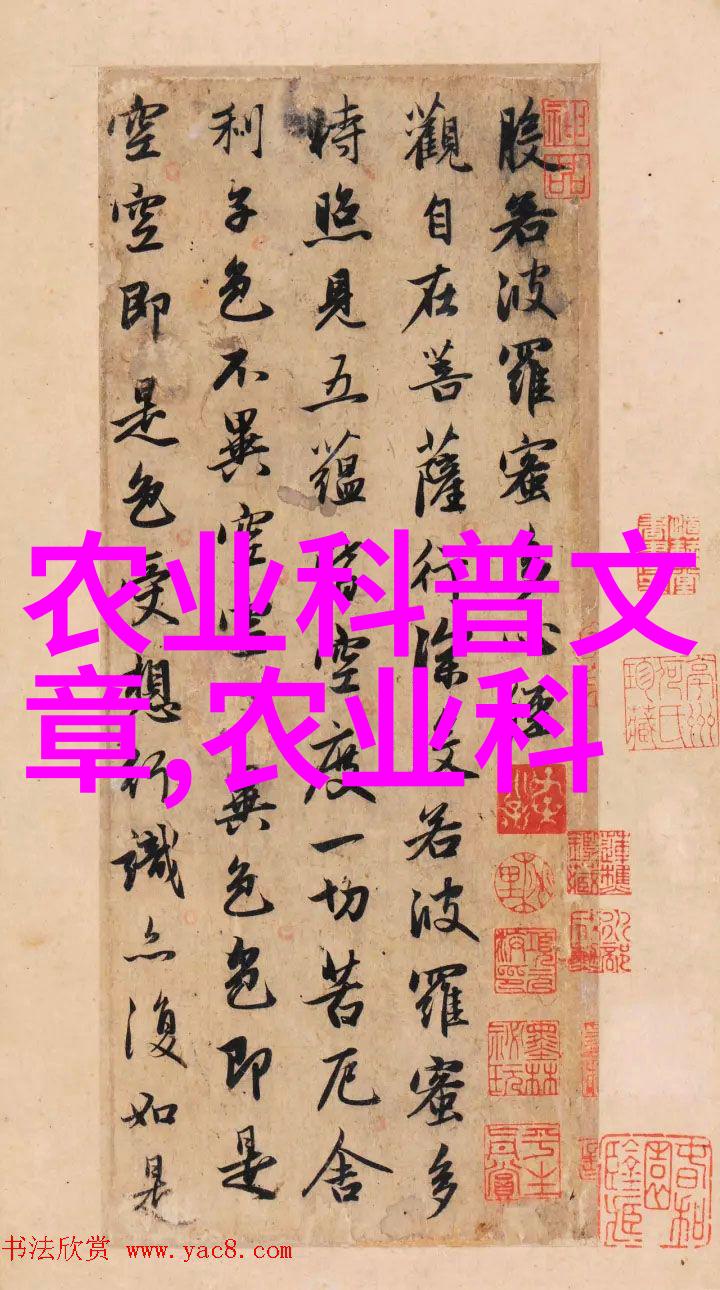 般若波羅蜜多心經
觀自在菩薩行深般若波羅蜜多
時照見五蘊皆空度一切苦厄舍
利子色不異空空不異色色即是
空空即是色受想行識亦復如是
农业科普文
章,农业科
神品
书法欣赏 www.yac8.com